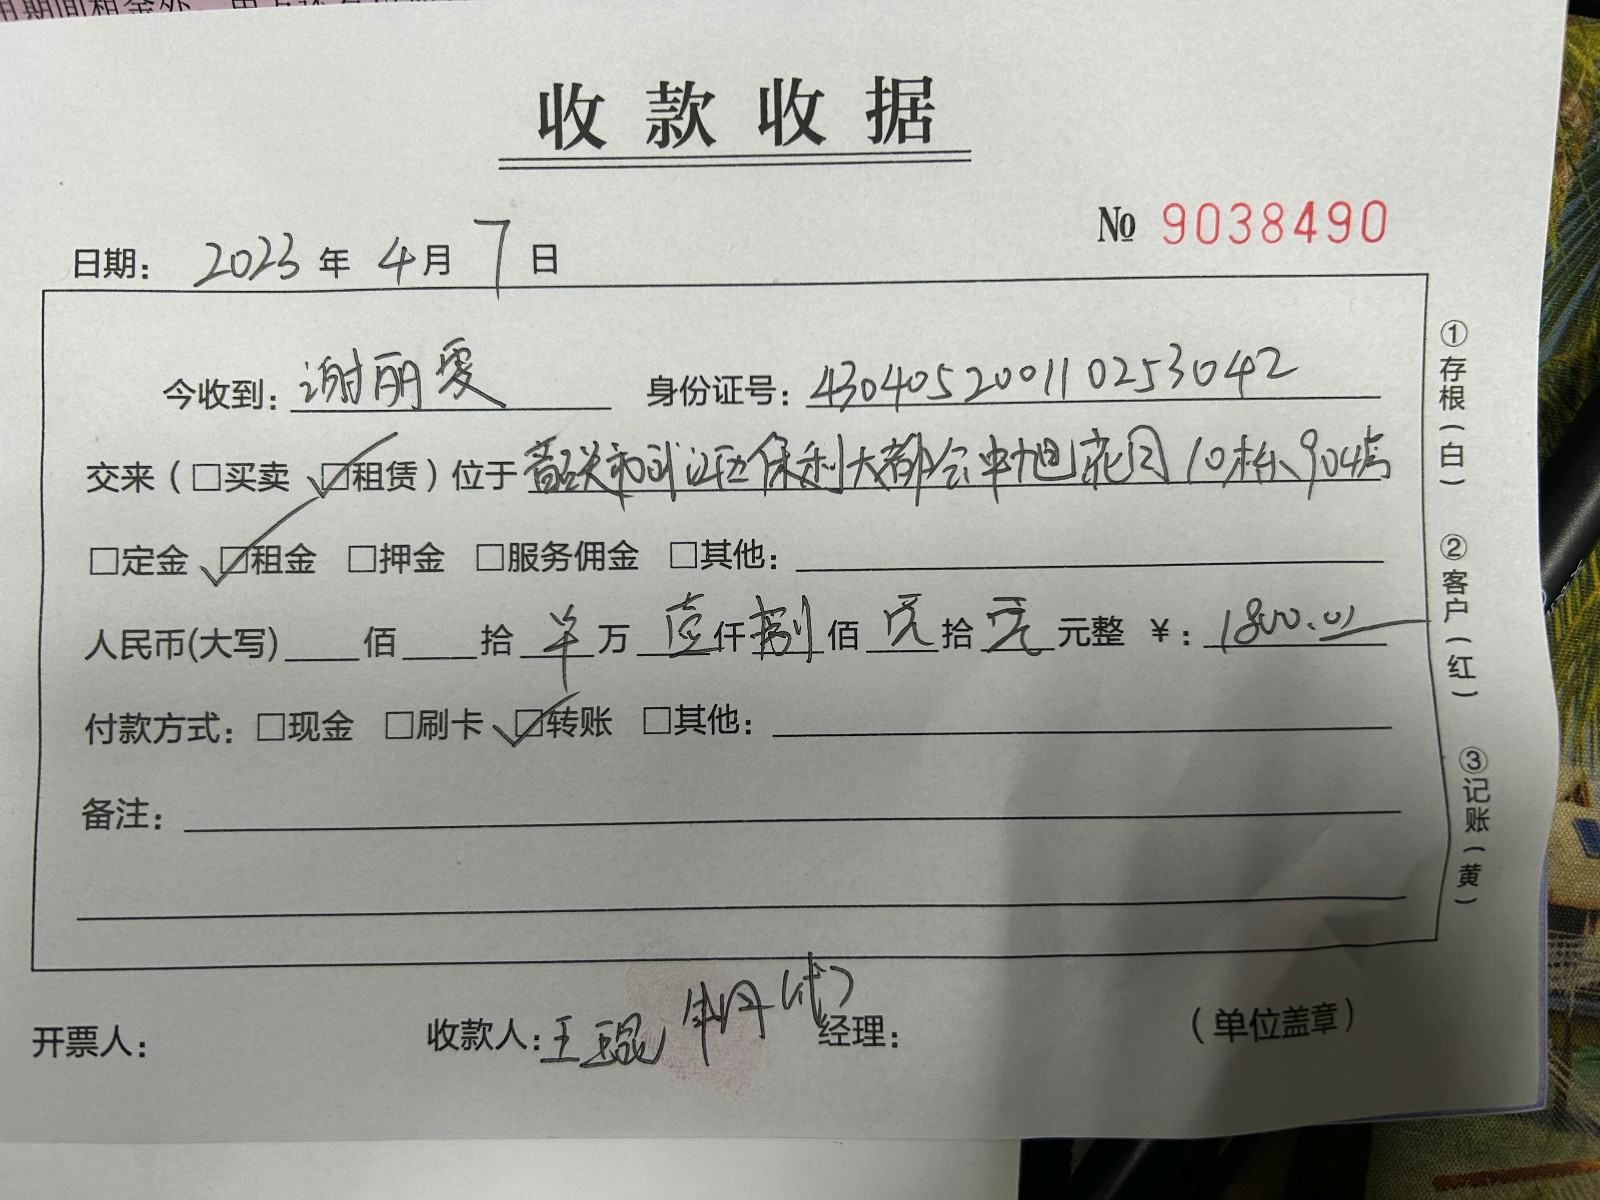 收款收据
№ 9038490
日期： 2023 年 4 月 7 日
今收到：谢丽雯 身份证号：430405200110253042
交来（□买卖 ☑租赁）位于 韶关市浈江区保利大都会中旭花园10栋904房
□定金 ☑租金 □押金 □服务佣金 □其他：
人民币(大写) 佰 拾 万 壹仟捌佰 零拾零元整 ￥：1800.00
付款方式：□现金 □刷卡 ☑转账 □其他：
备注：
开票人： 收款人：王琨 （代） 经理： （单位盖章）
①存根（白） ②客户（红） ③记账（黄）